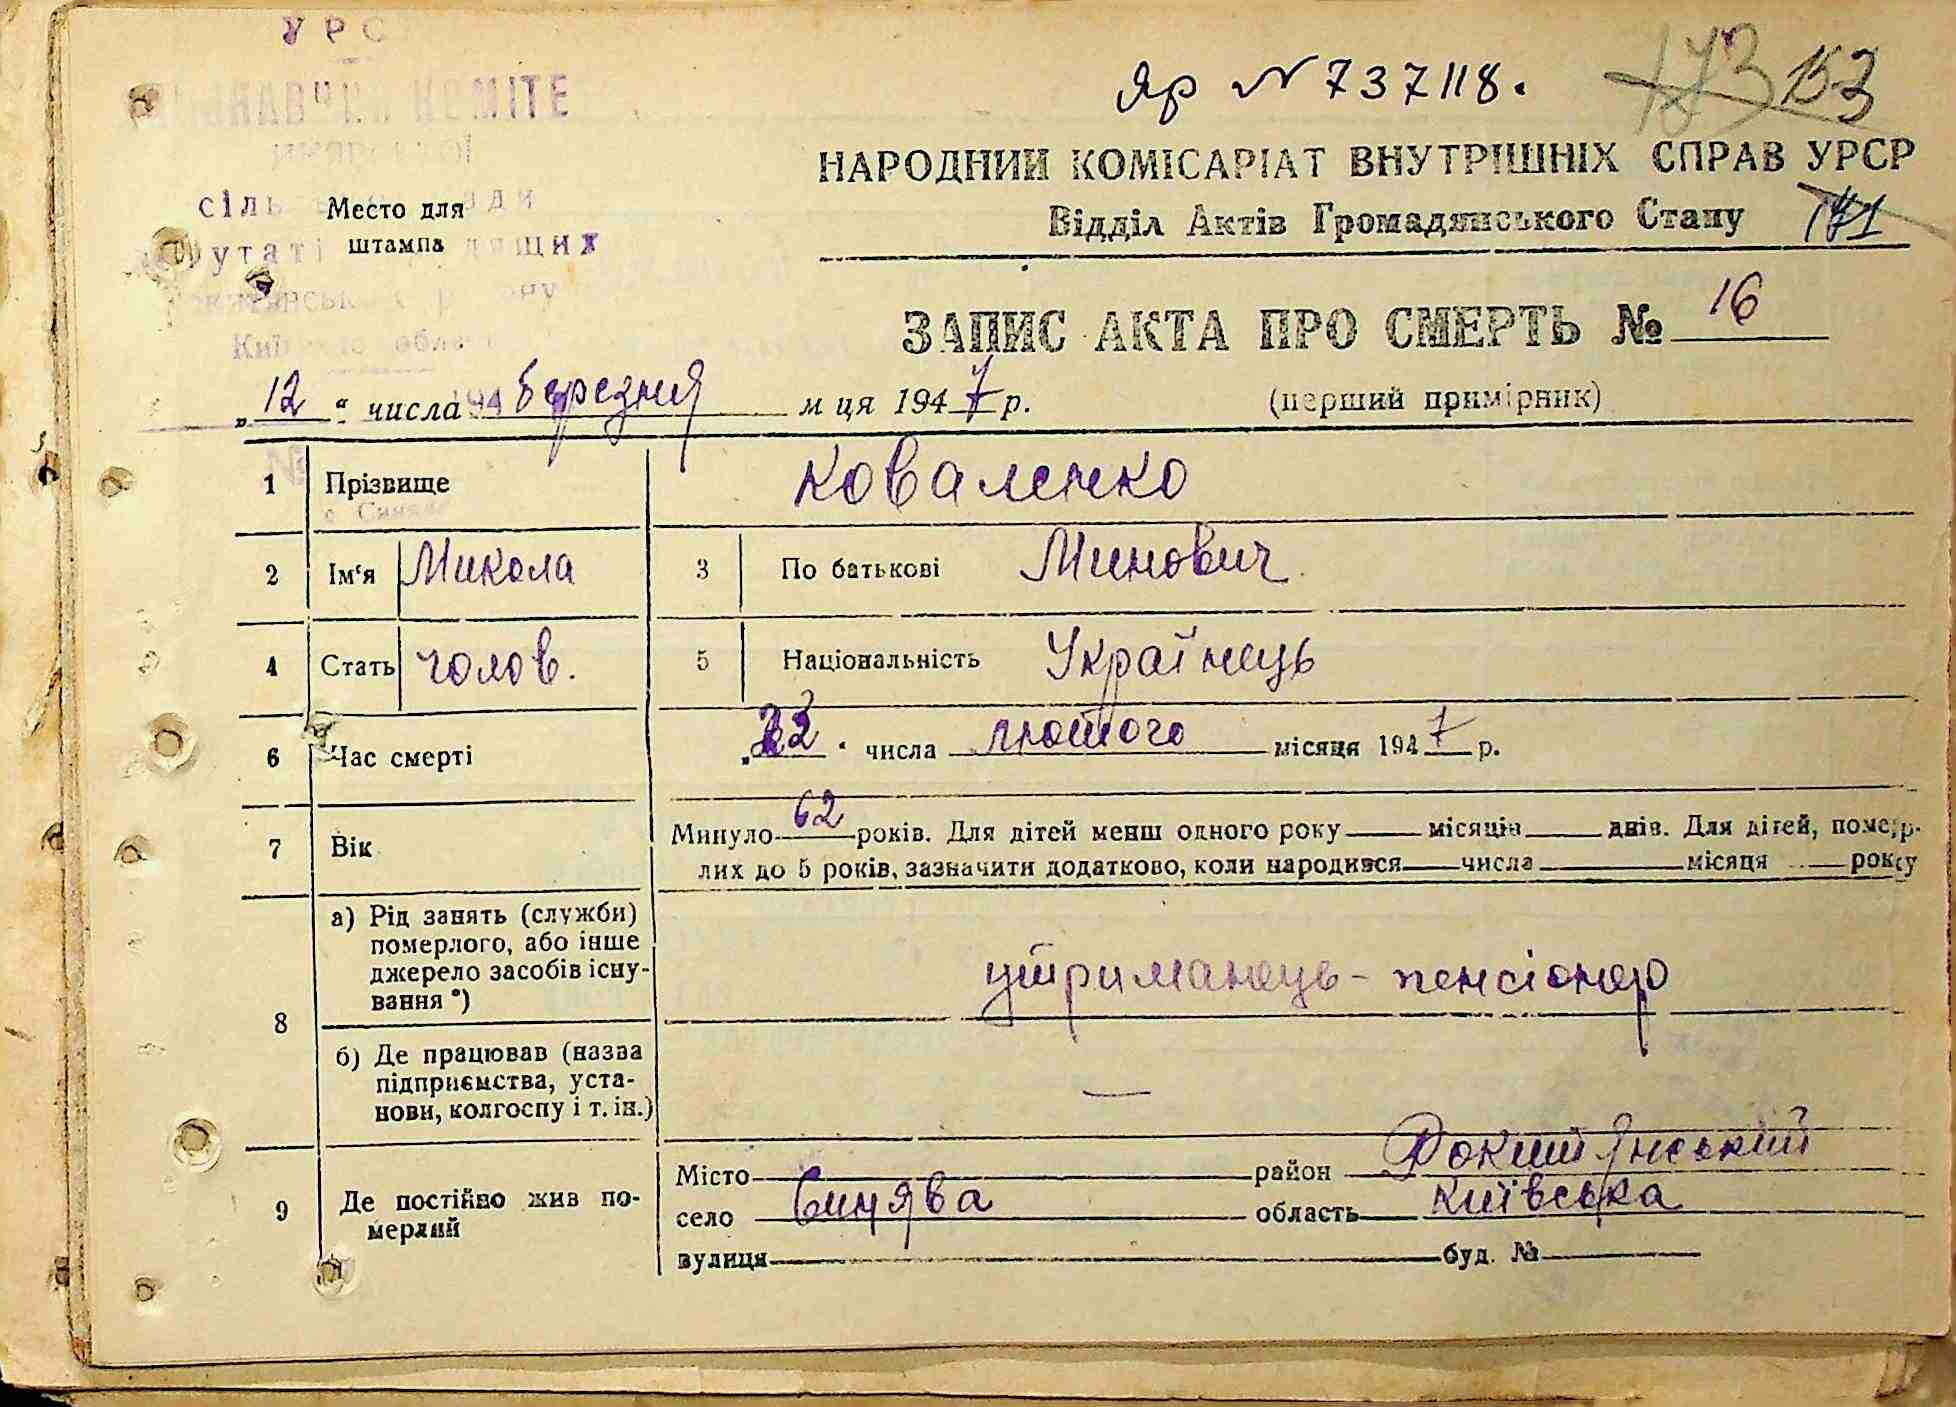 УРС
КОМІТЕ
Яр № 737118.
173 153
НАРОДНИЙ КОМІСАРІАТ ВНУТРІШНІХ СПРАВ УРСР
Место для
штампа
Відділ Актів Громадянського Стану 171
ЗАПИС АКТА ПРО СМЕРТЬ № 16
„12“ числа березня м ця 1947 р. (перший примірник)
1 Прізвище Коваленко
2 Ім‘я Микола 3 По батькові Минович
4 Стать чолов. 5 Національність Українець
6 Час смерті числа лютого місяця 1947 р.
7 Вік Минуло 62 років. Для дітей менш одного року місяців днів. Для дітей, помер-
лих до 5 років, зазначити додатково, коли народився числа місяця року
8 а) Рід занять (служби)
померлого, або інше
джерело засобів існу-
вання*)
утриманець - пенсіонер
б) Де працював (назва
підприємства, уста-
нови, колгоспу і т. ін.)
—
9 Де постійно жив по-
мерлий
Місто район Рокитянський
село Синява область Київська
вулиця буд. №